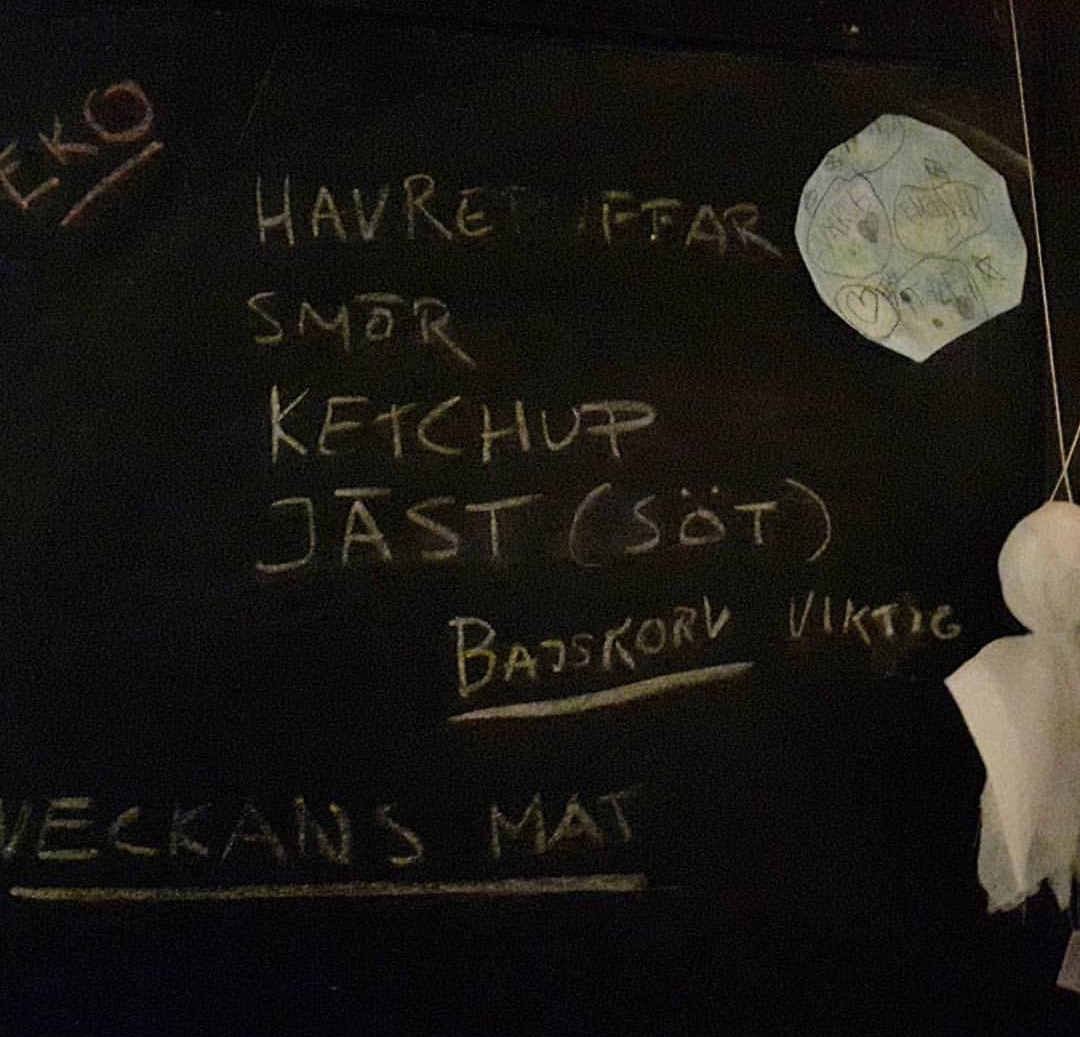 EKO
SMÖR
KETCHUP
JÄST (SÖT)
BAJSKORV VIKTIG
VECKANS MAT